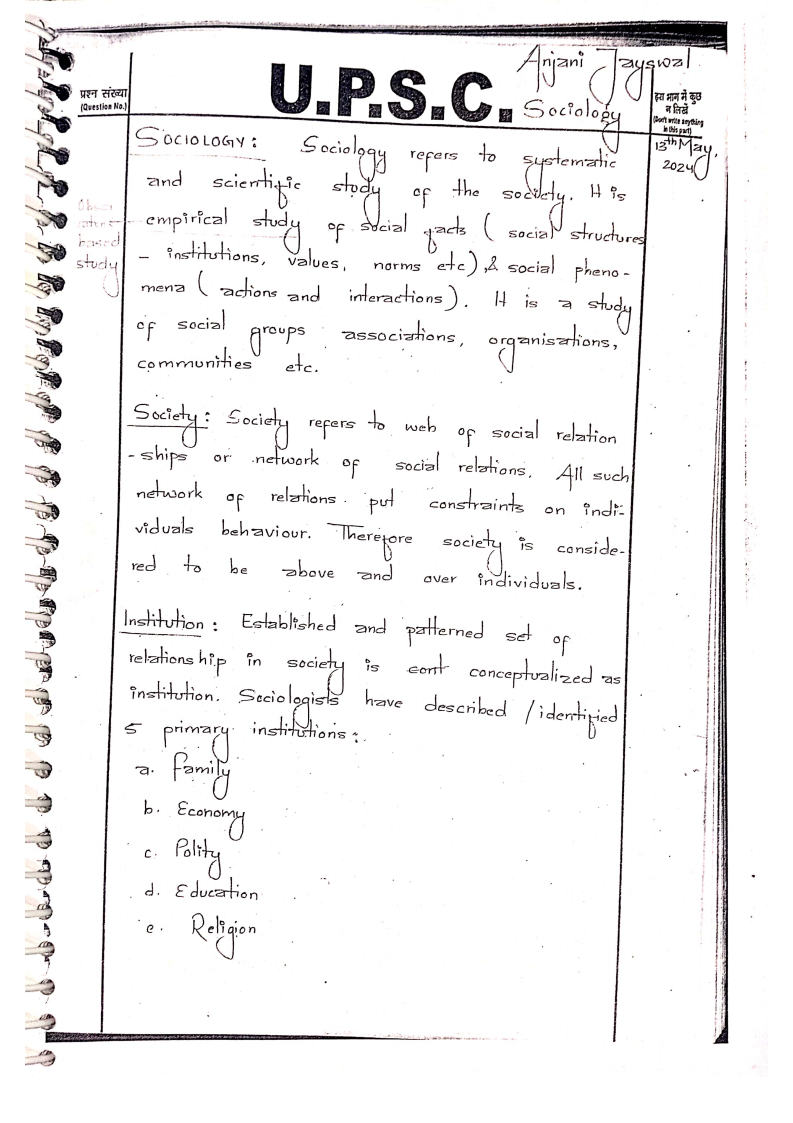 Anjani Jayswal
प्रश्न संख्या
(Question No.)
U.P.S.C.
Sociology
इस भाग में कुछ
न लिखें
(Don't write anything
in this part)
13th May,
2024
SOCIOLOGY : Sociology refers to systematic
and scientific study of the society. It is
empirical study of social facts ( social structures
- institutions, values, norms etc) & social pheno-
mena ( actions and interactions ). It is a study
of social groups associations, organisations,
communities etc.
based
study
Society : Society refers to web of social relation
-ships or network of social relations. All such
network of relations put constraints on indi-
viduals behaviour. Therefore society is conside-
red to be above and over individuals.
Institution : Established and patterned set of
relationship in society is cont conceptualized as
institution. Sociologists have described / identified
5 primary institutions :
a. family
b. Economy
c. Polity
d. Education
e. Religion